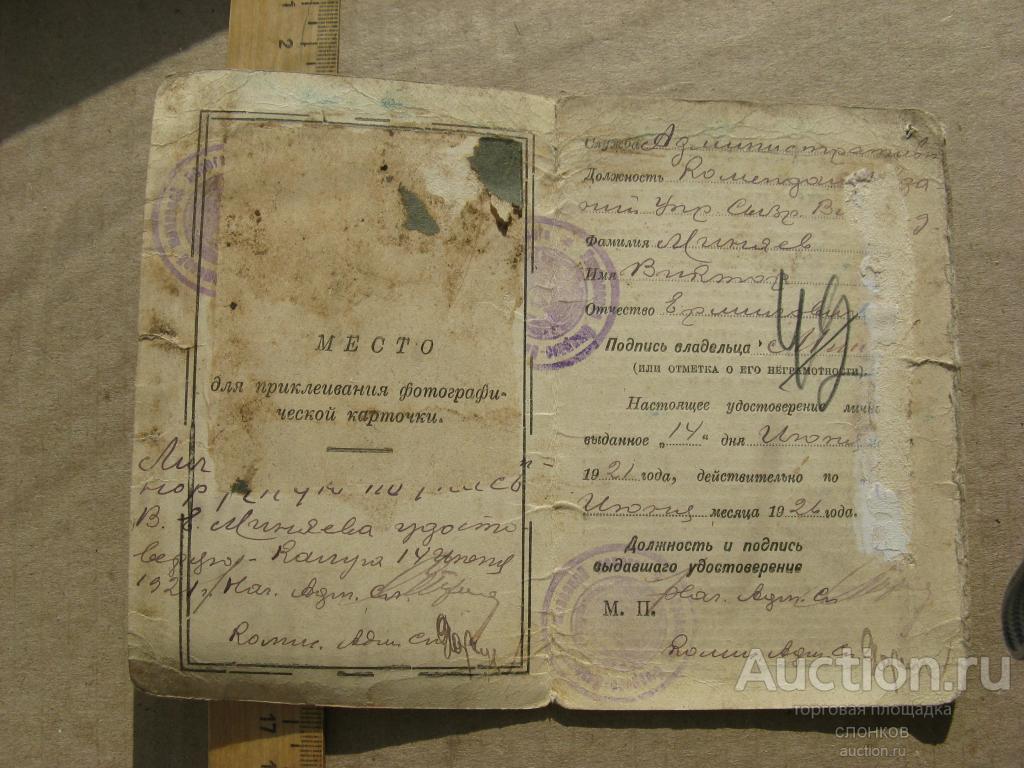 2
МЕСТО
для приклеивания фотографи-
ческой карточки.
Лич
подпись
В. Е. Миняева удосто
веряю - Калуга 14 Июня
1921 г. Нач. Адм. Сл.
Комис. Адм. Сл.
Служба Административн
Должность Комендан
Упр. Сызр. В
Фамилия Миняев
Имя Виктор
Отчество Ермилович
Подпись владельца
(ИЛИ ОТМЕТКА О ЕГО НЕГРАМОТНОСТИ).
Настоящее удостоверение личн
выданное „14“ дня Июня
1921 года, действительно по
Июня месяца 1926 года.
Должность и подпись
выдавшего удостоверение
Нач. Адм. Сл
М. П.
Комис Адм. Сл
17
Auction.ru
торговая площадка
СЛОНКОВ
auction.ru